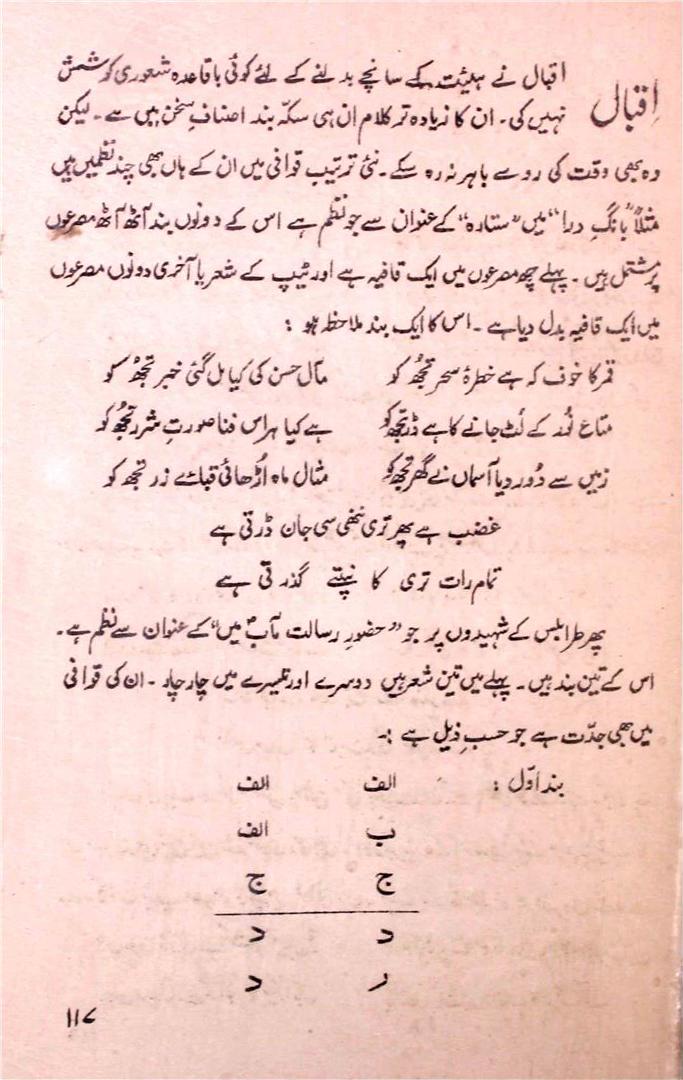 اقبال
اقبال نے ہیئت کے سانچے بدلنے کے لئے کوئی باقاعدہ شعوری کوشش
نہیں کی۔ ان کا زیادہ تر کلام ان ہی سکّہ بند اصنافِ سخن میں ہے۔ لیکن
وہ بھی وقت کی رو سے باہر نہ رہ سکے۔ نئی ترتیب قوافی میں ان کے ہاں بھی چند نظمیں ہیں
مثلاً "بانگِ درا" میں "ستارہ" کے عنوان سے جو نظم ہے اس کے دونوں بند آٹھ آٹھ مصرعوں
پر مشتمل ہیں۔ پہلے چھ مصرعوں میں ایک قافیہ ہے اور ٹیپ کے شعر یا آخری دونوں مصرعوں
میں ایک قافیہ بدل دیا ہے۔ اس کا ایک بند ملاحظہ ہو :
قمر کا خوف کہ ہے خطرۂ سحر تجھ کو مآل حسن کی کیا مل گئی خبر تجھ کو
متاع نُور کے لُٹ جانے کا ہے ڈر تجھ کو ہے کیا ہراس فنا صورتِ شرر تجھ کو
زمیں سے دُور دیا آسماں نے گھر تجھ کو مثال ماہ اُڑھائی قبائے زر تجھ کو
غضب ہے پھر تری ننھی سی جان ڈرتی ہے
تمام رات تری کانپتے گذرتی ہے
پھر طرابلس کے شہیدوں پر جو "حضورِ رسالت مآبؐ میں" کے عنوان سے نظم ہے۔
اس کے تین بند ہیں۔ پہلے میں تین شعر ہیں دوسرے اور تیسرے میں چار چار۔ ان کی قوافی
میں بھی جدّت ہے جو حسبِ ذیل ہے :۔
بند اوّل : الف الف
ب الف
ج ج
د د
ر د
۱۱۷